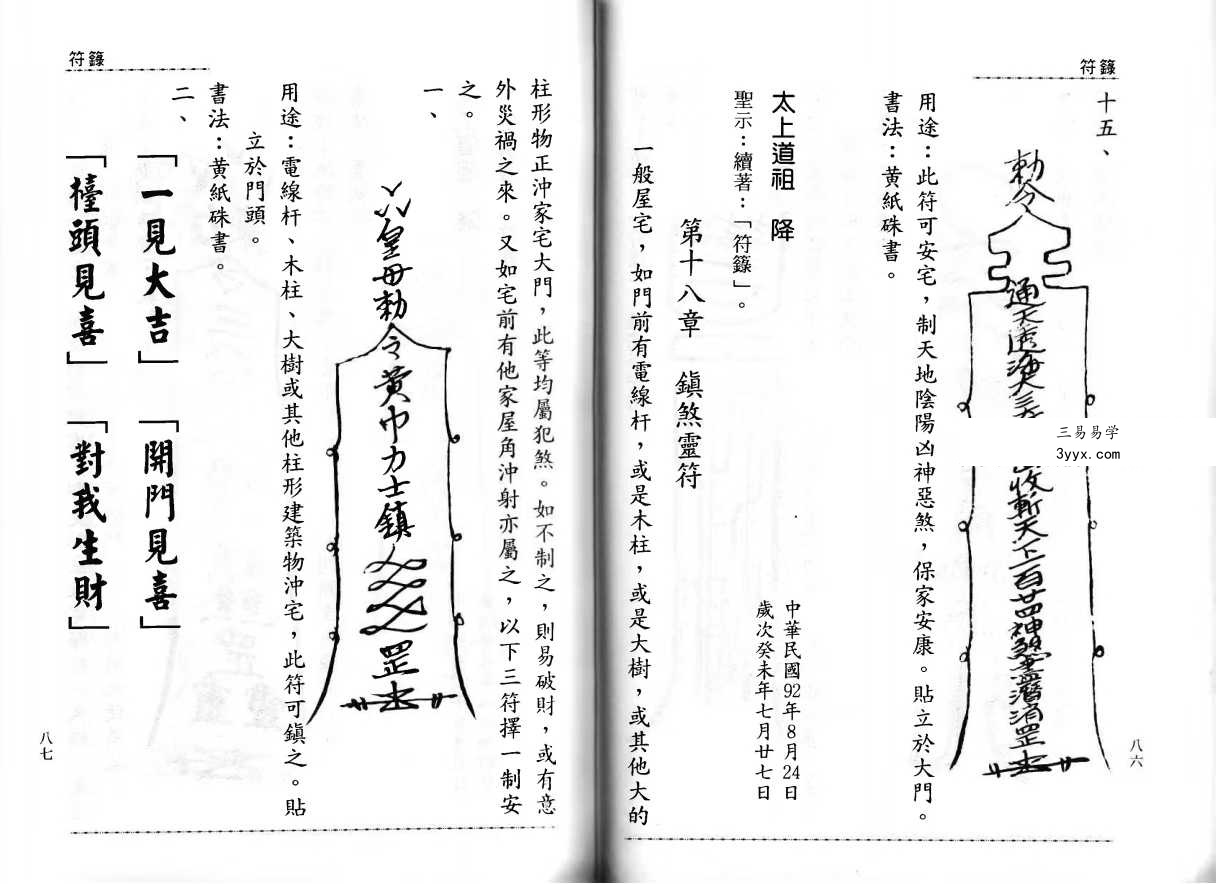 符籙
十五、
勅令
通天透
收斬天下一百廿四神煞
消罡
用途：此符可安宅，制天地陰陽凶神惡煞，保家安康。貼立於大門。
書法：黃紙硃書。
太上道祖 降
聖示：續著：「符籙」。
中華民國92年8月24日
歲次癸未年七月廿七日
第十八章 鎮煞靈符
一般屋宅，如門前有電線杆，或是木柱，或是大樹，或其他大的
八六
三易易学
3yyx.com
符籙
柱形物正沖家宅大門，此等均屬犯煞。如不制之，則易破財，或有意
外災禍之來。又如宅前有他家屋角沖射亦屬之，以下三符擇一制安
之。
一、
皇母勅令黃巾力士鎮
罡
用途：電線杆、木柱、大樹或其他柱形建築物沖宅，此符可鎮之。貼
立於門頭。
書法：黃紙硃書。
二、
「一見大吉」「開門見喜」
「檯頭見喜」「對我生財」
八七